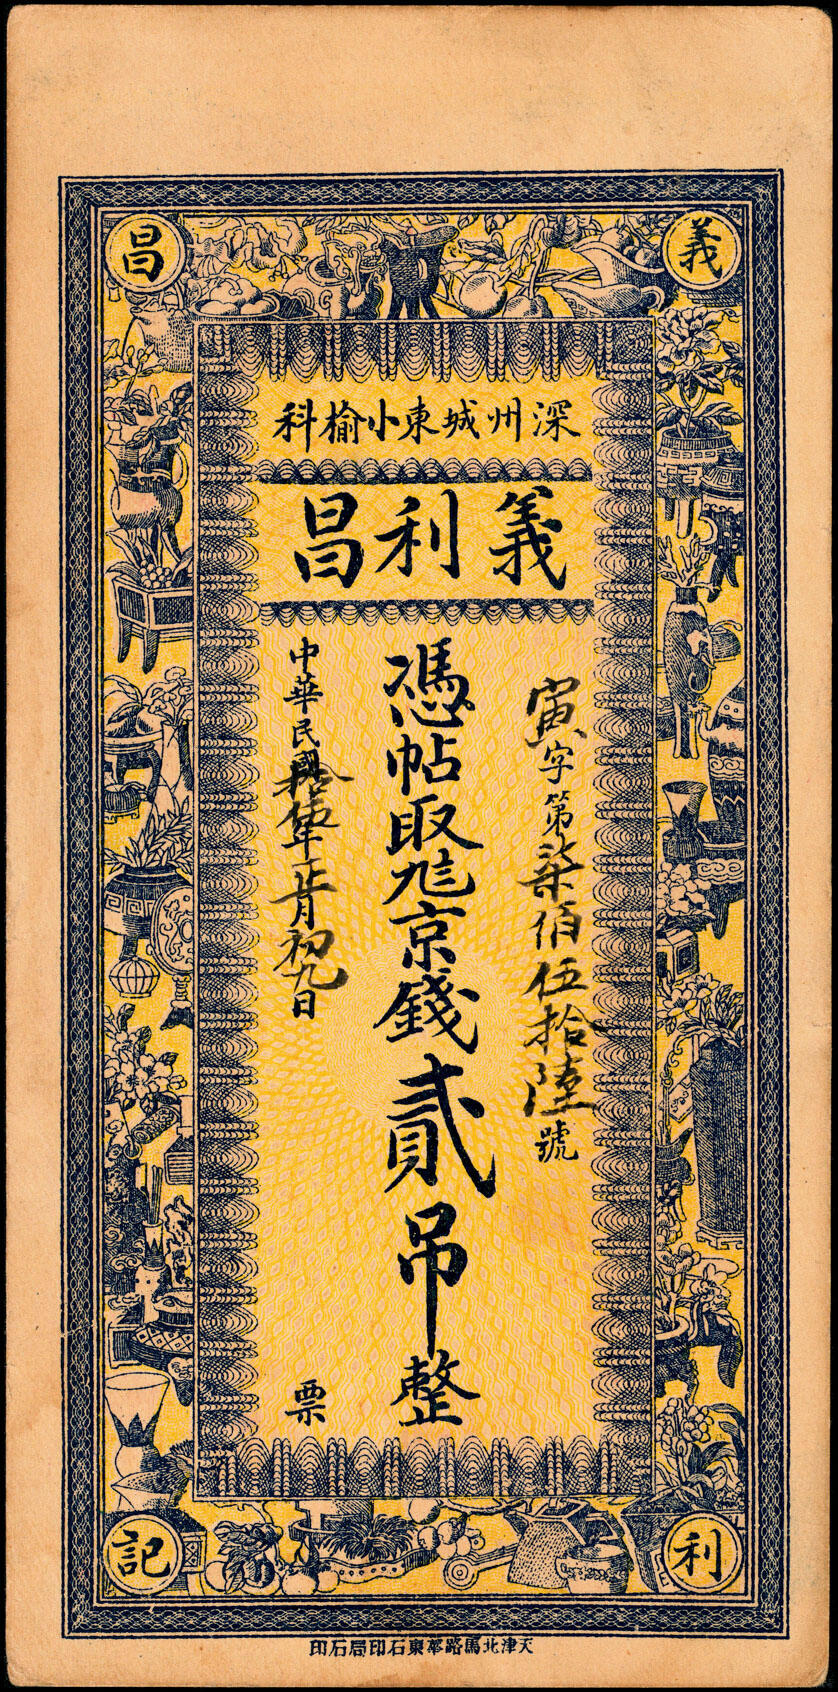 義
昌
深州城東小榆科
義利昌
寅字第柒佰伍拾陸號
憑帖取九京錢貳吊整
中華民國拾伍年正月初九日
票
利
記
天津北馬路華東石印局石印